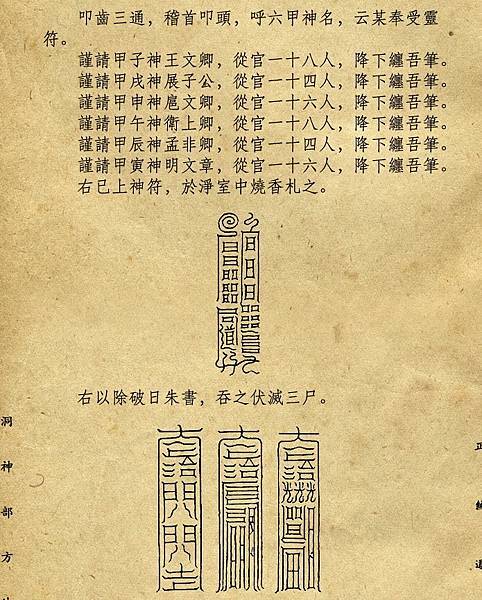 叩齒三通，稽首叩頭，呼六甲神名，云某奉受靈
符。
謹請甲子神王文卿，從官一十八人，降下纏吾筆。
謹請甲戌神展子公，從官一十四人，降下纏吾筆。
謹請甲申神扈文卿，從官一十六人，降下纏吾筆。
謹請甲午神衛上卿，從官一十八人，降下纏吾筆。
謹請甲辰神孟非卿，從官一十四人，降下纏吾筆。
謹請甲寅神明文章，從官一十六人，降下纏吾筆。
右已上神符，於淨室中燒香札之。
右以除破日朱書，吞之伏滅三尸。
洞神部方
正統道